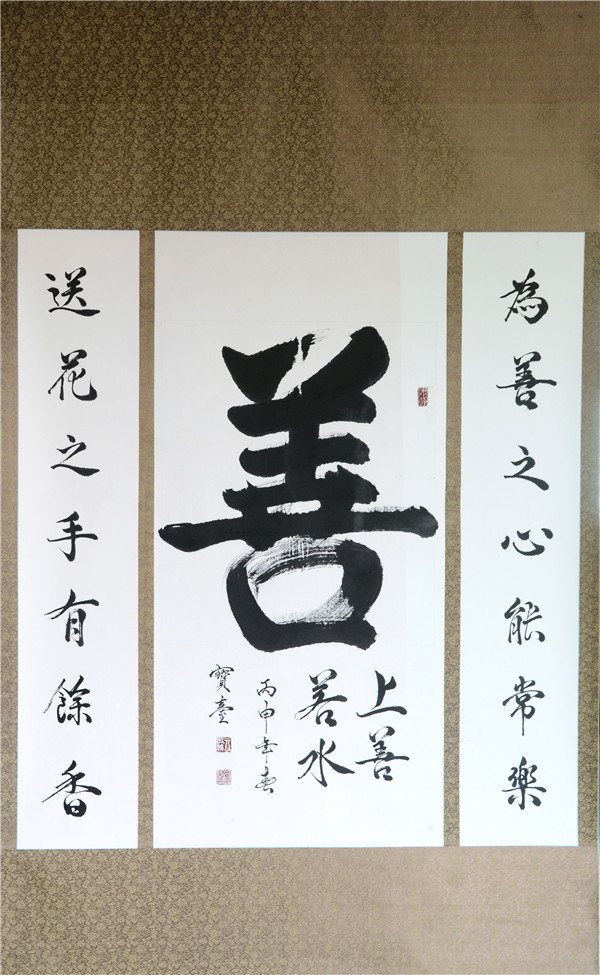 為善之心能常樂
善
上善
若水
丙申年春
寶臺
送花之手有餘香